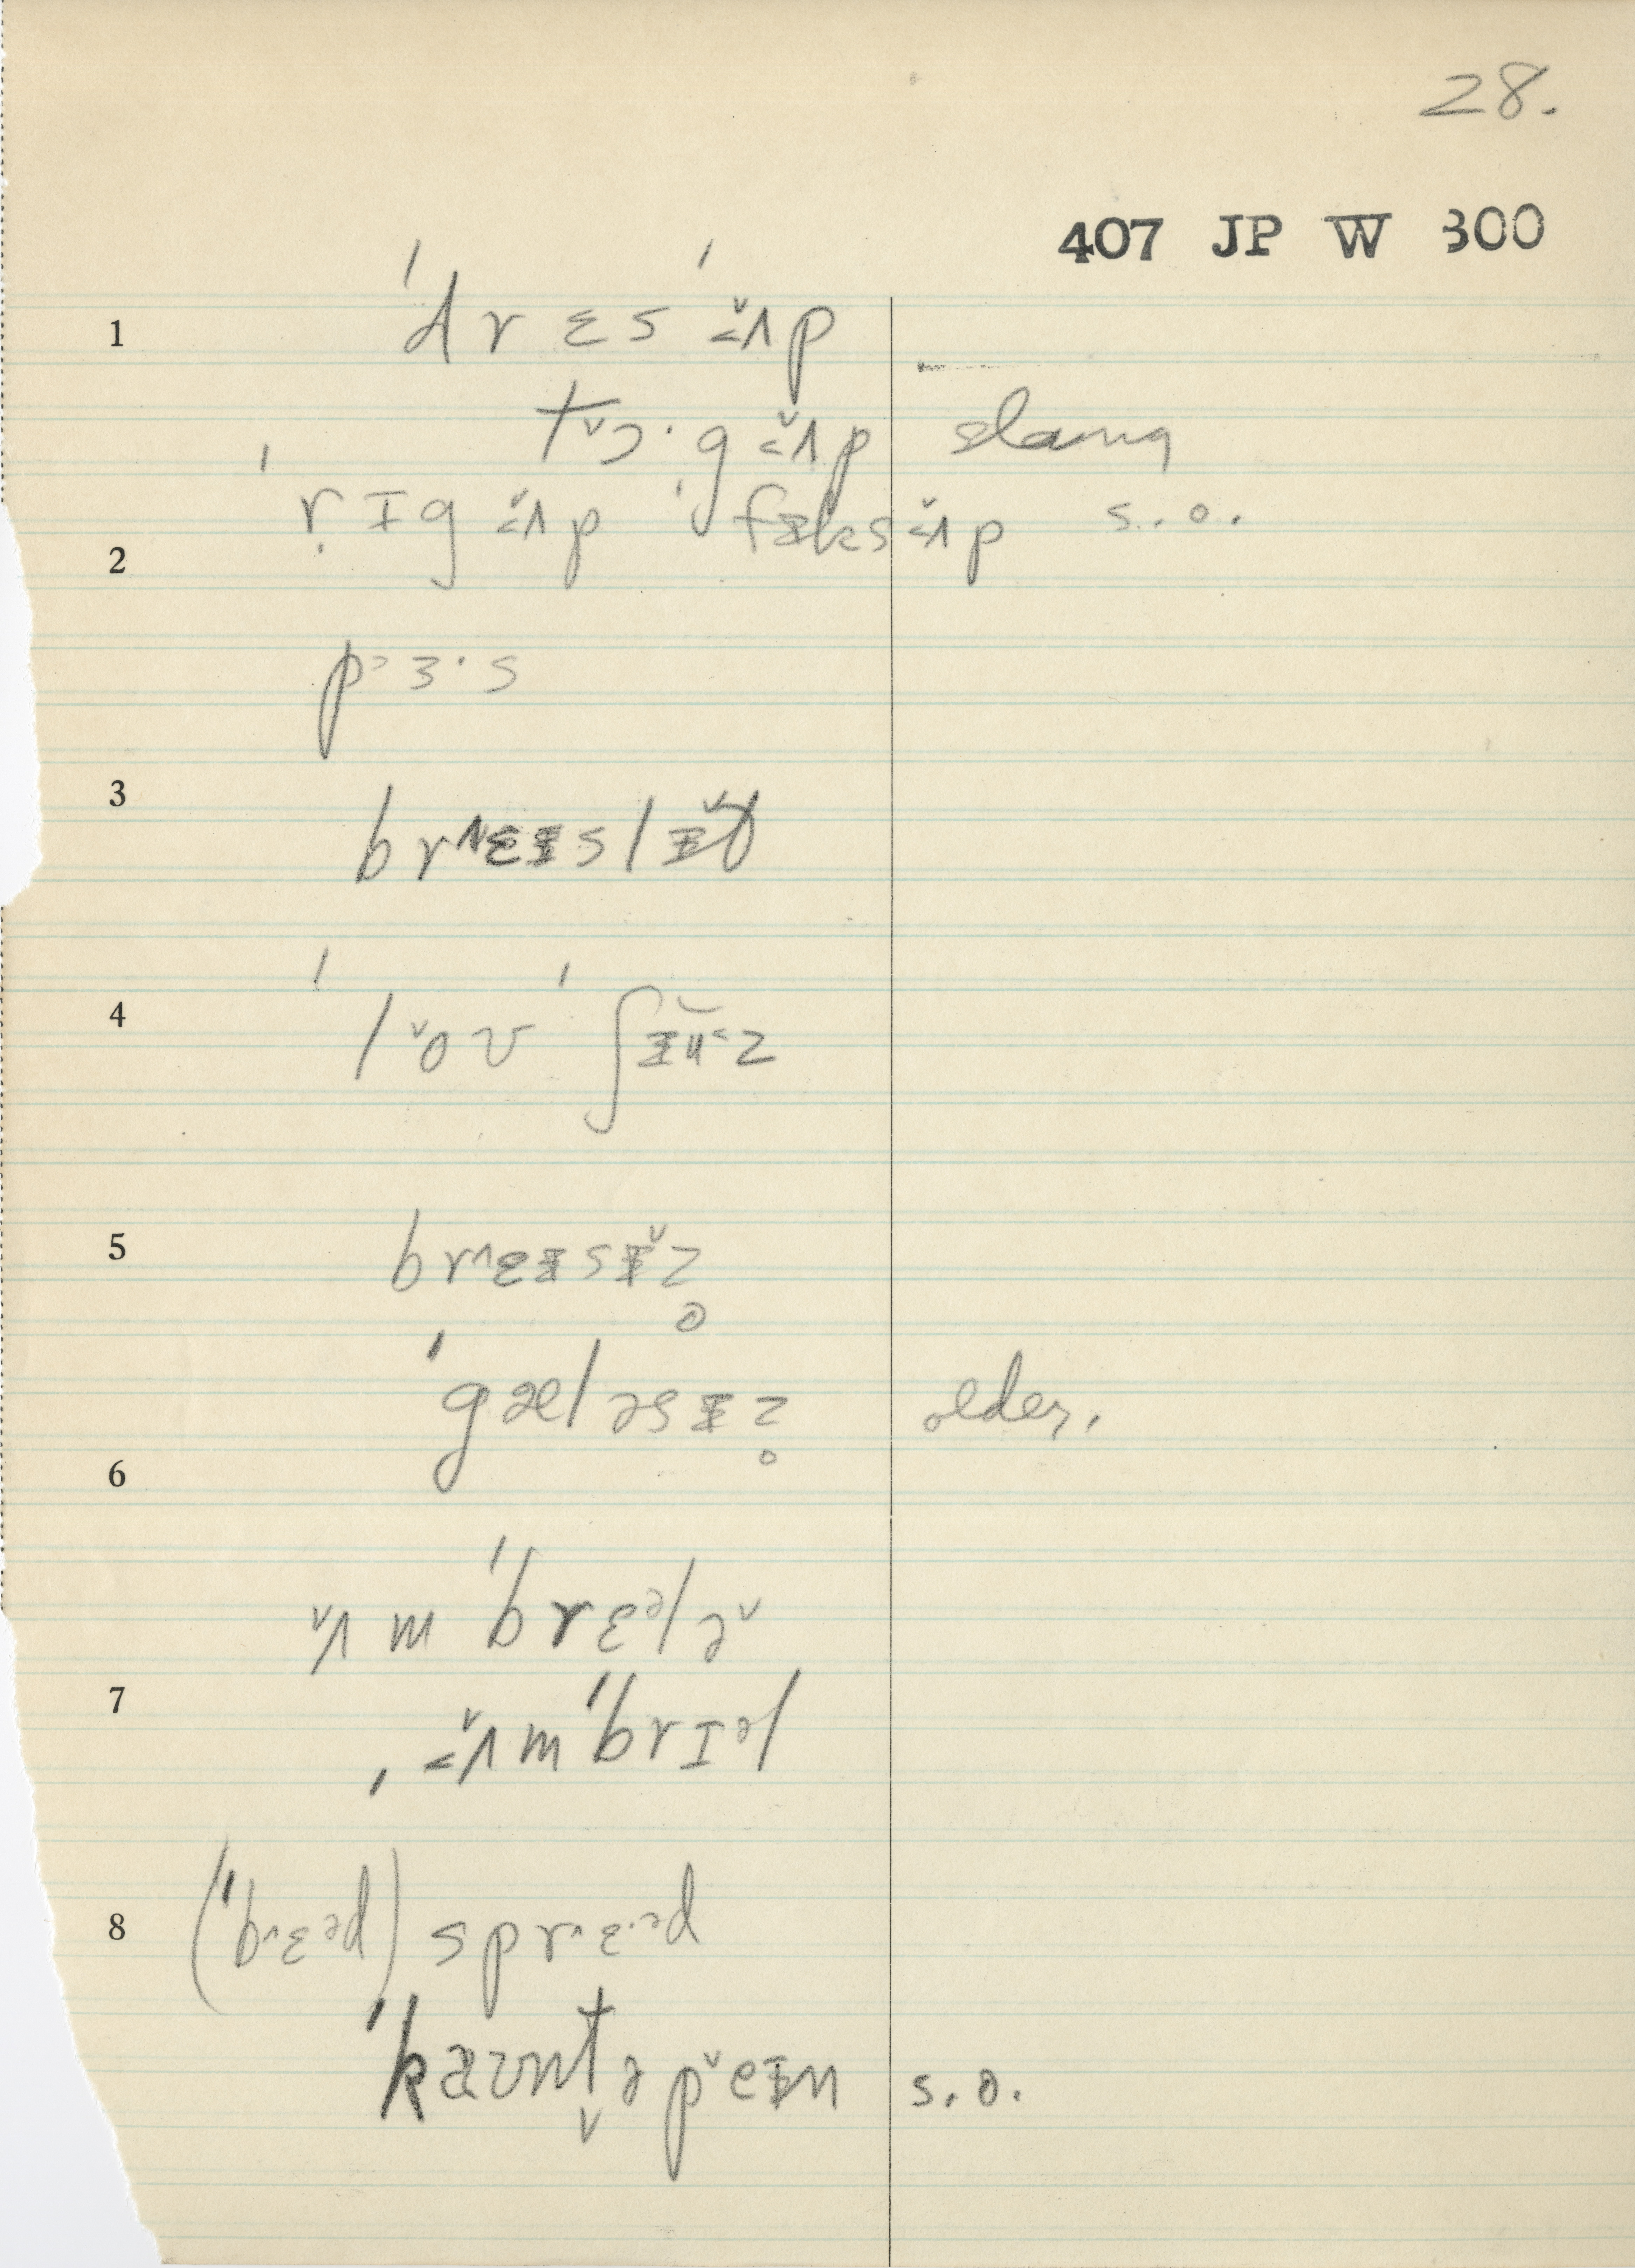 28.
407 JP W 300
1 ˈdrɛsˈʌ̌p
tˇɔ·gʌ̌p slang
ˈrɪgʌ̌p ˈfæksʌ̌p s.o.
2
pɜ·s
3
brʌɛɪslɪ̌t̬
4 ˈlˇoʊˈʃɪu̯z
5 brʌɛɪsɪ̌z̥
ˈgæləsɪz̥ older.
6
ˇʌmˈbrɛᵊləˇ
7
, ʌ̌mˈbrɪᵊl
8 (ˈbrɛᵊd) sprɛ·ᵊd
ˈkaʊnt̬əpˇeɪn s.o.